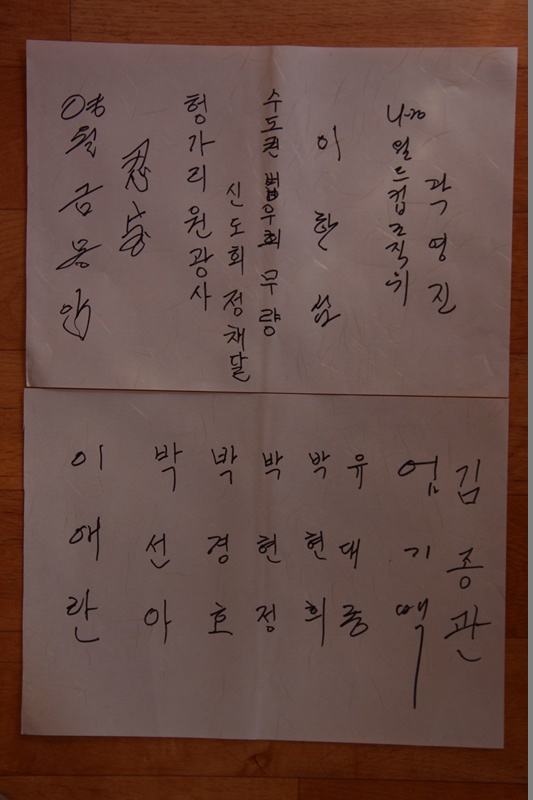 영월 금몽암
忍
헝가리 원광사
신도회 정채달
수도권 법우회 무량
이 한
U-20 월드컵조직위
곽영진
이애란
박선아
박경호
박현정
박현희
유대종
엄기
김종관